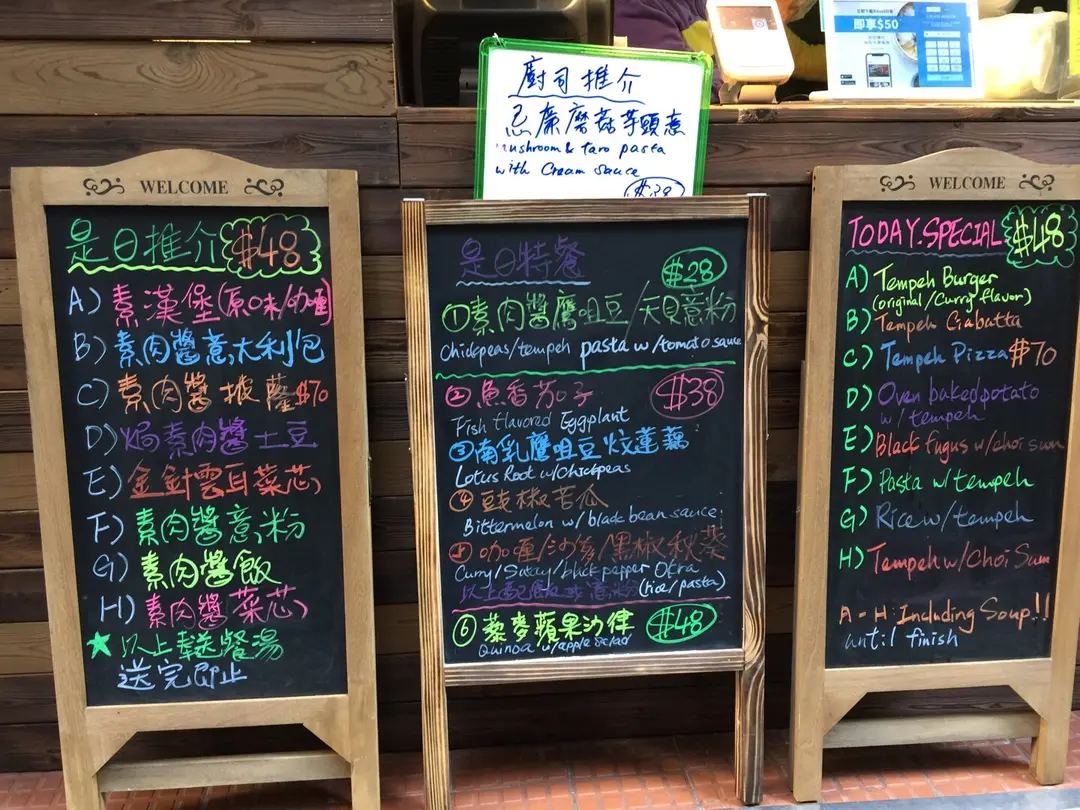 即享$50
廚司推介
忌廉磨菇芋頭意
mushroom & taro pasta
with Cream sauce
$38
WELCOME
是日推介 $48
A) 素漢堡(原味/咖喱)
B) 素肉醬意大利包
C) 素肉醬披薩$70
D) 焗素肉醬土豆
E) 金針雲耳菜芯
F) 素肉醬意粉
G) 素肉醬飯
H) 素肉醬菜芯
★以上奉送餐湯
送完即止
是日特餐 $28
①素肉醬鷹咀豆/天貝意粉
Chickpeas/tempeh pasta w/tomato sauce
②魚香茄子 $38
Fish flavored Eggplant
③南乳鷹咀豆炆蓮藕
Lotus Root w/chickpeas
④豉椒苦瓜
Bittermelon w/black bean sauce
⑤咖喱/沙爹/黑椒秋葵
Curry/Satay/black pepper Okra
以上配飯或意粉 (rice/pasta)
⑥藜麥蘋果沙律 $48
Quinoa w/apple Salad
WELCOME
TODAY.SPECIAL $48
A) Tempeh Burger
(original/Curry flavor)
B) Tempeh Ciabatta
C) Tempeh Pizza $70
D) Oven baked potato
w/ tempeh
E) Black fugus w/choi sum
F) Pasta w/ tempeh
G) Rice w/ tempeh
H) Tempeh w/ Choi Sum
A - H: Including Soup!!
until finish